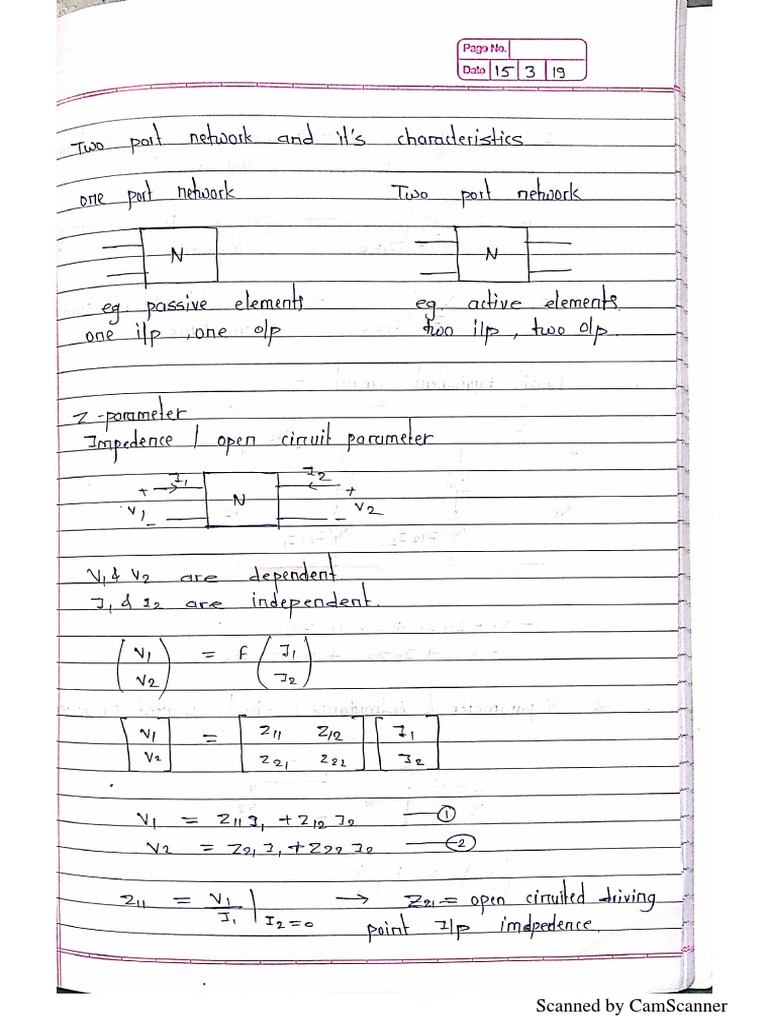 Page No.
Date 15 3 19
Two port network and it's characteristics
one port network Two port network
N N
eg. passive elements eg. active elements
one i/p , one o/p two i/p , two o/p.
Z-parameter
Impedence / open circuit parameter
+ I1 N I2 +
V1 - - V2
V1 & V2 are dependent.
I1 & I2 are independent.
(V1 V2) = f (I1 I2)
[V1 V2] = [Z11 Z12 Z21 Z22] [I1 I2]
V1 = Z11 I1 + Z12 I2 — ①
V2 = Z21 I1 + Z22 I2 — ②
Z11 = V1/I1 | I2=0 → Z21 = open circuited driving
point I/p imdpedence.
Scanned by CamScanner